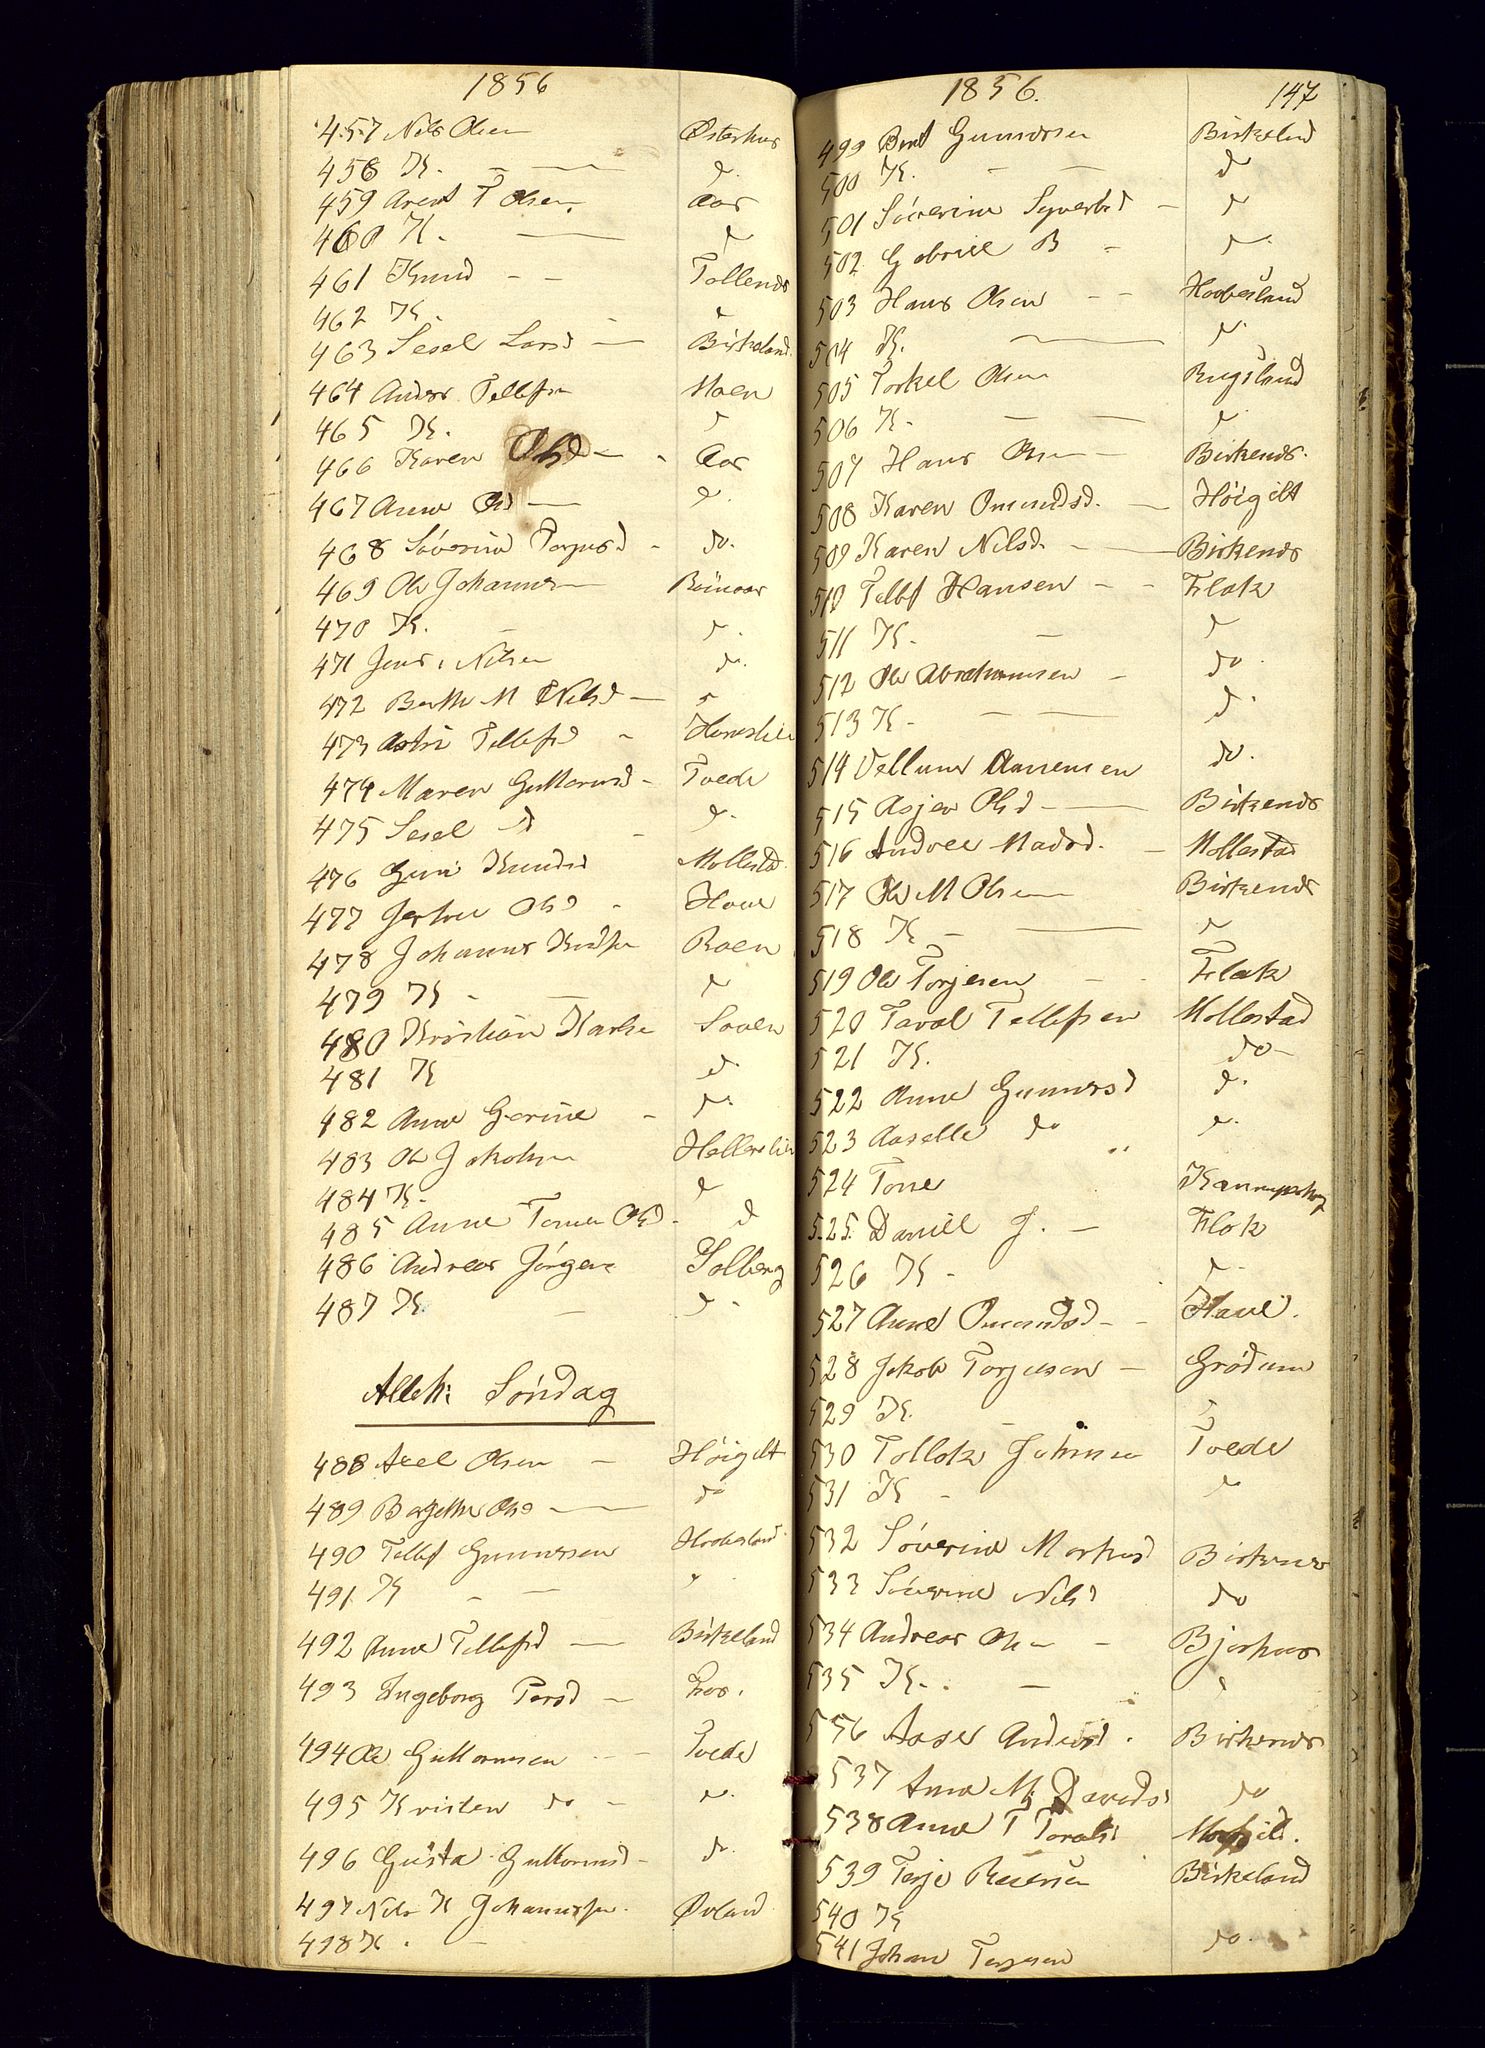 1856
457 Nils Olsen Østerhus
458 K. d.
459 Arent T Olsen Aas
460 K. d
461 Knud Tollends
462 K. d
463 Sesel Larsd Birkeland
464 Anders Tellefsn Moen
465 K. d
466 Karen Olsd Aas
467 Anne Olsd d.
468 Sóverine Torjusd do.
469 Ole Johannes
470 K. d.
471 Jens Nilsen do.
472 Berthe M Nilsd d
473 Astri Tellefsd
474 Maren Guttormsd Tvede
475 Sesel d d.
476 Guri Knudsd Mollestd
477 Olsd Hove
478 Johannes Roen
479 K. d
480 Kristian
481 K d.
482 Anne Gerine do
483 Ole Jakobsen
484 K. d
485 Anne Tomine Olsd d
486 Andreas Jórgens Solberg
487 K. d.
Alleh: Sóndag
488 Axel Olsen Hóigilt
489 Borgethe Olsd do
490 Tellef Gunnersen Haabesland
491 K d
492 Anne Tellefsd Birkeland
493 Ingeborg Persd
494 Ole Guttormsen Tvede
495 Kristen do do.
496 Gusta Guttormsd do.
497 Nils K Johannesen Øvland
498 K.
1856. 147
499 Bent Gunnersen Birkelnd
500 K. d
501 Sóverine Syvertsd d
502 Gabriel B d.
503 Hans Olsen Haabesland
504 K. d.
505 Torkel Olsen Rugsland
506 K. d.
507 Hans Olsen Birkends.
508 Karen Omundsd. Hóigilt
509 Karen Nilsd. Birkends
510 Tellef Hansen Flak
511 K. d
512 Ole Abrahamsen do.
513 K. d.
514 Vellum Aanensen do.
515 Asjer Olsd Birkends
516 Andrea Madsd. Mollestad
517 Ole M Olsen Birkends
518 K d
519 Ole Torjesen Flak
520 Taral Tellefsen Mollestad
521 K. do
522 Anne Gunnersd d.
523 Aaselle do d.
524 Tone
525. Daniel J. Flak
526 K. d.
527 Anne Omundsd Have.
528 Jakob Torjusen Gródum
529 K. d
530 Tellok Johnsen Tvede
531 K d
532 Sóverine Markusd Birkenes
533 Sóverine Nilsd do
534 Andreas Olsen Bjorhus
535 K. d
556 Aase Andersd. Birkends
537 Anne M. Davidsd do
538 Anne T Taralsd
539 Terje Birkeland
540 K
541 Johan Terjesen do.